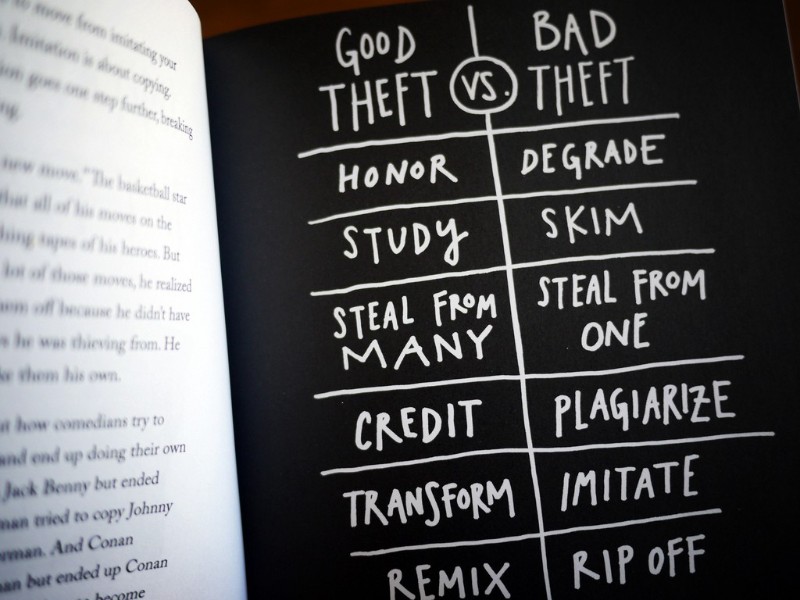 to move from imitating your
. Imitation is about copying,
goes one step further, breaking
new move." The basketball star
that all of his moves on the
tapes of his heroes. But
lot of those moves, he realized
off because he didn't have
he was thieving from. He
them his own.
how comedians try to
and end up doing their own
Jack Benny but ended
tried to copy Johnny
And Conan
but ended up Conan
become
GOOD THEFT VS. BAD THEFT
HONOR DEGRADE
STUDY SKIM
STEAL FROM MANY STEAL FROM ONE
CREDIT PLAGIARIZE
TRANSFORM IMITATE
REMIX RIP OFF